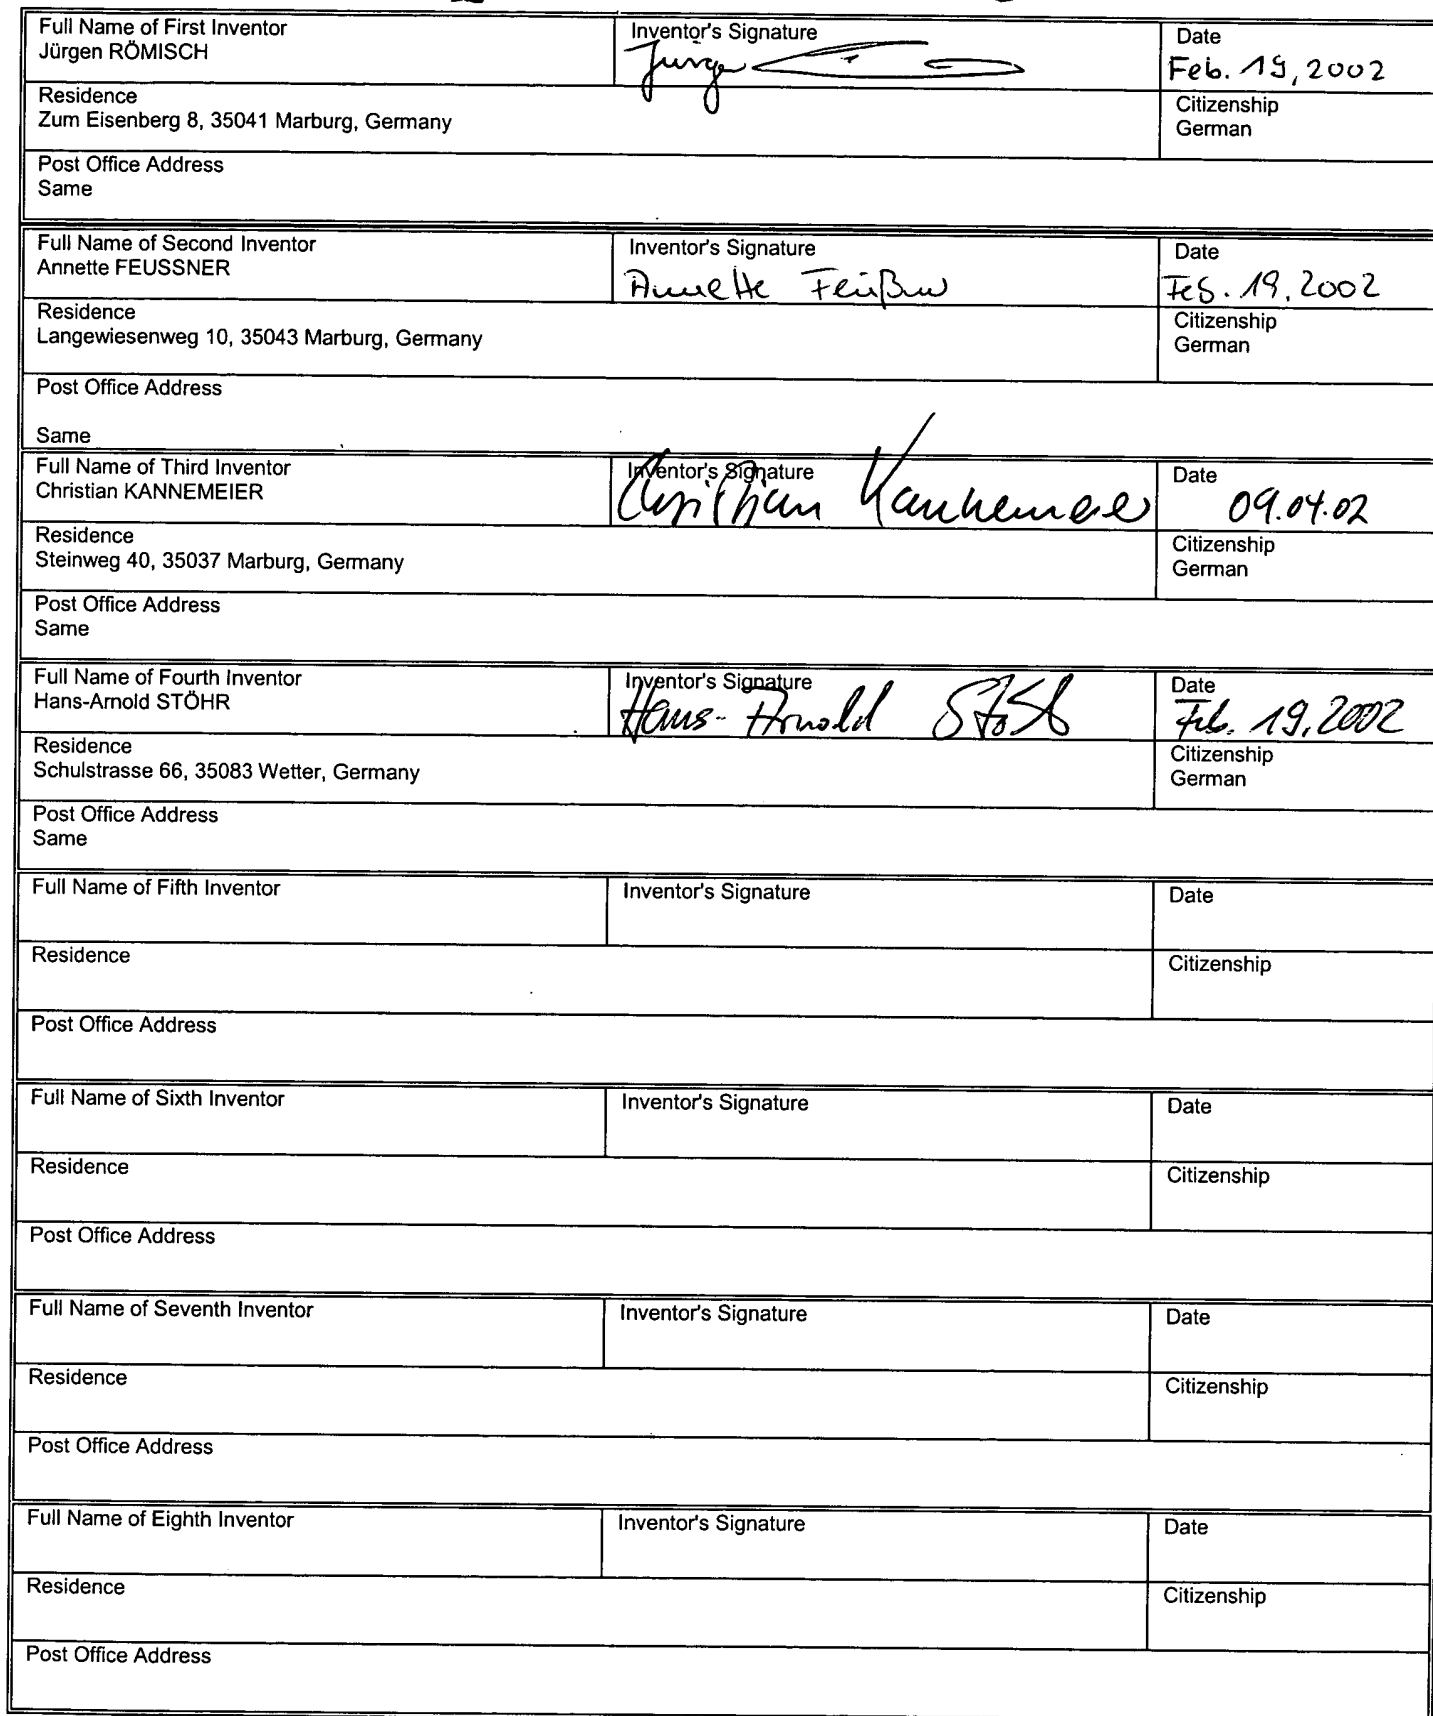 Full Name of First Inventor
Jürgen RÖMISCH
Inventor's Signature
Jürgen
Date
Feb. 19, 2002
Residence
Zum Eisenberg 8, 35041 Marburg, Germany
Citizenship
German
Post Office Address
Same
Full Name of Second Inventor
Annette FEUSSNER
Inventor's Signature
Annette Feußner
Date
Feb. 19, 2002
Residence
Langewiesenweg 10, 35043 Marburg, Germany
Citizenship
German
Post Office Address
Same
Full Name of Third Inventor
Christian KANNEMEIER
Inventor's Signature
Christian Kannemeier
Date
09.04.02
Residence
Steinweg 40, 35037 Marburg, Germany
Citizenship
German
Post Office Address
Same
Full Name of Fourth Inventor
Hans-Arnold STÖHR
Inventor's Signature
Hans-Arnold Stöhr
Date
Feb. 19, 2002
Residence
Schulstrasse 66, 35083 Wetter, Germany
Citizenship
German
Post Office Address
Same
Full Name of Fifth Inventor
Inventor's Signature
Date
Residence
Citizenship
Post Office Address
Full Name of Sixth Inventor
Inventor's Signature
Date
Residence
Citizenship
Post Office Address
Full Name of Seventh Inventor
Inventor's Signature
Date
Residence
Citizenship
Post Office Address
Full Name of Eighth Inventor
Inventor's Signature
Date
Residence
Citizenship
Post Office Address